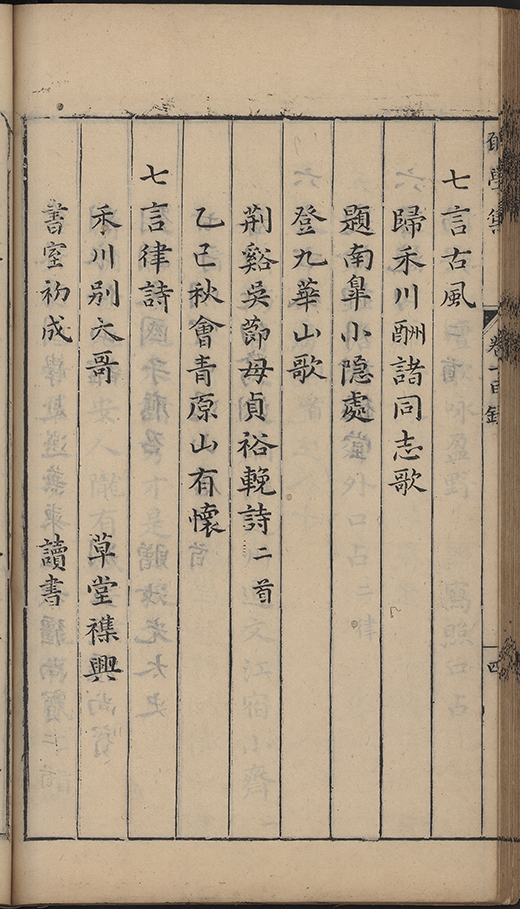 七言古風
歸禾川酬諸同志歌
題南臯小隠處
登九華山歌
荆谿吳節母貞裕輓詩二首
乙己秋會青原山有懷
七言律詩
禾川别六哥 草堂襍興
書室初成 讀書
學集 卷一目錄 四